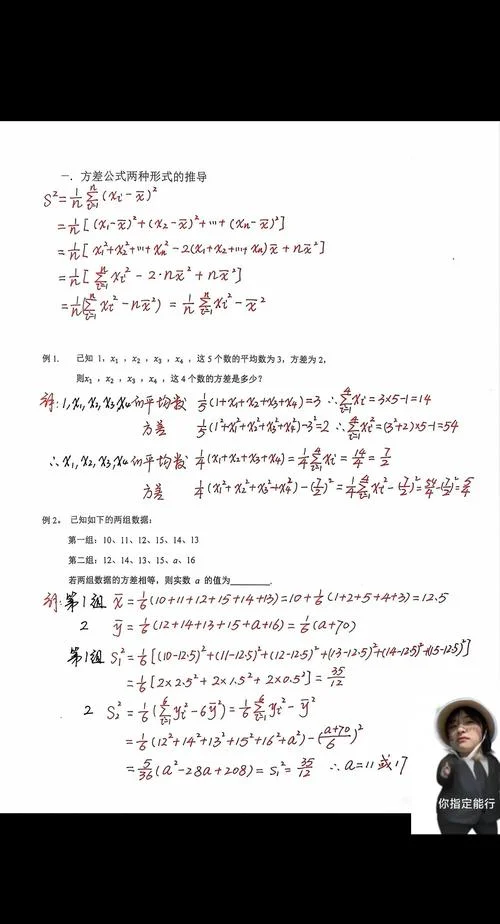 一. 方差公式两种形式的推导
S²=1/n ∑ⁿᵢ₌₁(xᵢ-x̄)²
=1/n[(x₁-x̄)²+(x₂-x̄)²+…+(xₙ-x̄)²]
=1/n[x₁²+x₂²+…+xₙ²-2(x₁+x₂+…+xₙ)x̄+nx̄²]
=1/n[∑ⁿᵢ₌₁xᵢ²-2·nx̄²+nx̄²]
=1/n(∑ⁿᵢ₌₁xᵢ²-nx̄²)=1/n ∑ⁿᵢ₌₁xᵢ²-x̄²
例 1. 已知 1, x₁, x₂, x₃, x₄, 这 5 个数的平均数为 3, 方差为 2,
则x₁, x₂, x₃, x₄, 这 4 个数的方差是多少?
解: 1,x₁,x₂,x₃,x₄的平均数 1/5(1+x₁+x₂+x₃+x₄)=3 ∴∑⁴ᵢ₌₁xᵢ=3×5-1=14
方差 1/5(1²+x₁²+x₂²+x₃²+x₄²)-3²=2 ∴∑⁴ᵢ₌₁xᵢ²=(3²+2)×5-1=54
∴x₁,x₂,x₃,x₄的平均数 1/4(x₁+x₂+x₃+x₄)=1/4∑⁴ᵢ₌₁xᵢ=14/4=7/2
方差 1/4(x₁²+x₂²+x₃²+x₄²)-(7/2)²=1/4∑⁴ᵢ₌₁xᵢ²-(7/2)²=54/4-(7/2)²=5/4
例 2. 已知如下的两组数据:
第一组: 10、11、12、15、14、13
第二组: 12、14、13、15、a、16
若两组数据的方差相等, 则实数 a 的值为______.
解: 第1组 x̄=1/6(10+11+12+15+14+13)=10+1/6(1+2+5+4+3)=12.5
2 ȳ=1/6(12+14+13+15+a+16)=1/6(a+70)
第1组 S₁²=1/6[(10-12.5)²+(11-12.5)²+(12-12.5)²+(13-12.5)²+(14-12.5)²+(15-12.5)²]
=1/6[2×2.5²+2×1.5²+2×0.5²]=35/12
2 S₂²=1/6(∑⁶ᵢ₌₁yᵢ²-6ȳ²)=1/6∑⁶ᵢ₌₁yᵢ²-ȳ²
=1/6(12²+14²+13²+15²+16²+a²)-((a+70)/6)²
=5/36(a²-28a+208)=S₁²=35/12 ∴a=11或17
你指定能行